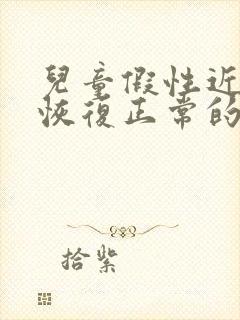 兒童假性近
恢復正常的
拾紫